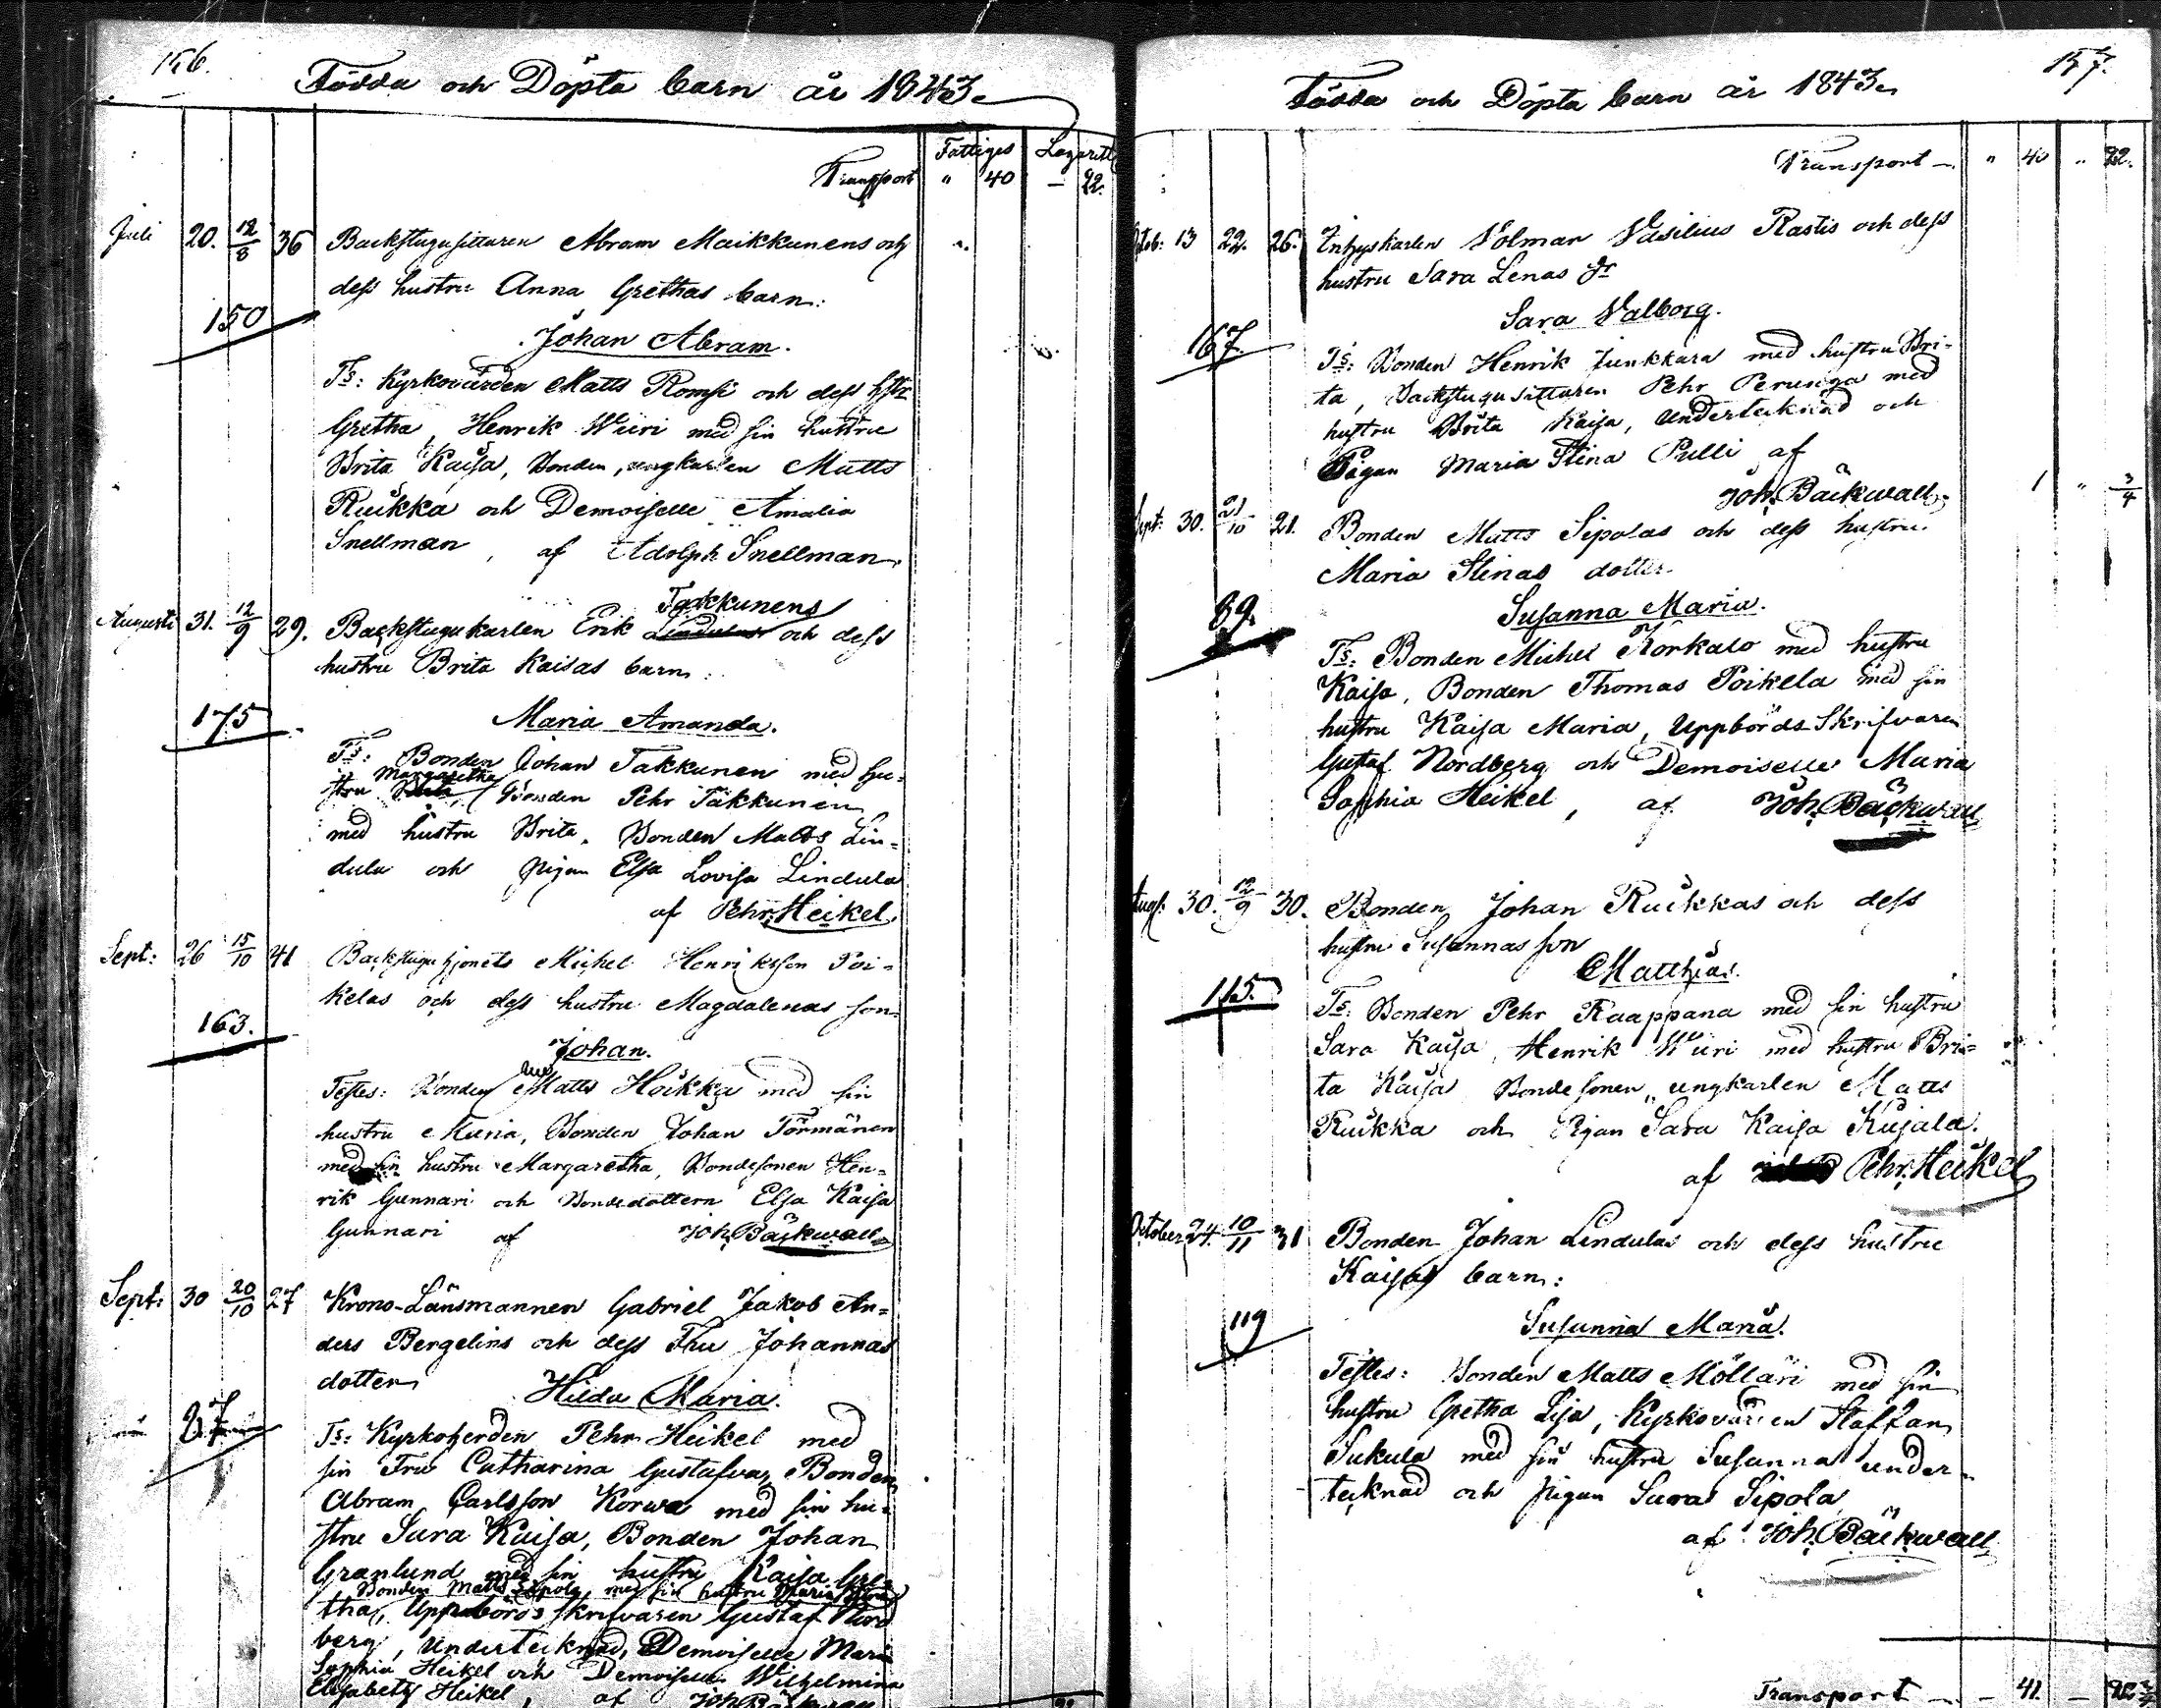 156.
Födda och Döpta barn år 1843.
Fattiges Lazarett
Transport " 40 — 22.
Juli 20. 12/8 36 Backstugusittaren Abram Maikkunens och
dess hustru Anna Grethas barn:
150
Johan Abram.
Ts: Kyrkovärden Matts Romsi och dess hstr
Gretha, Henrik Wiiri med sin hustru
Brita Kaisa, Bonden, ungkarlen Matts
Ruikka och Demoiselle Amalia
Snellman, af Adolph Snellman.
Takkunens
Augusti 31. 12/9 29. Backstugukarlen Erik Lindulas och dess
hustru Brita Kaisas barn:
175
Maria Amanda.
Ts: Bonden Johan Takkunen med hu-
Margaretha
stru Brita, Bonden Pehr Takkunen
med hustru Brita, Bonden Matts Lin-
dula och pigan Elsa Lovisa Lindula
af Pehr Heikel.
Sept: 26 15/10 41 Backstuguhjonets Michel Henriksson Poi-
kelas och dess hustru Magdalenas son
163.
Johan.
Testes: Bonden Matts Höikka med sin
hustru Maria, Bonden Johan Törmänen
med sin hustru Margaretha, Bondesonen Hen-
rik Gunnari och Bondedottern Elsa Kaisa
Gunnari af Joh. Bäckwall
Sept: 30 20/10 27 Krono-Länsmannen Gabriel Jakob An-
ders Bergelins och dess Fru Johannas
dotter
Hilda Maria.
87
Ts: Kyrkoherden Pehr Heikel med
sin Fru Catharina Gustafva, Bonden
Abram Carlsson Korwa med sin hu-
stru Sara Kaisa, Bonden Johan
Granlund med sin hustru Kaisa Gre-
Bonden Matts Sipola, med sin hustru Maria Stina
tha, Uppbörds skrifvaren Gustaf Nord
berg, undertecknad, Demoiselle Maria
Sophia Heikel och Demoiselle Wilhelmina
Elisabeth Heikel, af Joh. Bäckwall
157.
Födda och Döpta barn år 1843.
Transport — " 40 " 22.
Octob: 13 22. 26. Inhyskarlen Volmar Wasilius Rastis och dess
hustru Sara Lenas dr
Sara Valborg.
167.
Ts: Bonden Henrik Junkkara med hustru Bri-
ta, Backstugusittaren Pehr Perunga med
hustru Brita Kaisa, undertecknad och
Pigan Maria Stina Pulli af
Joh. Bäckwall. 1 " 3/4
Sept: 30. 21/10 21. Bonden Matts Sipolas och dess hustru
Maria Stinas dotter
Susanna Maria.
89.
Ts: Bonden Michel Korkalo med hustru
Kaisa, Bonden Thomas Poikela med sin
hustru Kaisa Maria, Uppbörds Skrifvaren
Gustaf Nordberg och Demoiselle Maria
Sophia Heikel, af Joh. Bäckwall
Aug: 30. 12/9 30. Bonden Johan Ruikkas och dess
hustru Susannas son
Matthias.
115.
Ts: Bonden Pehr Raappana med sin hustru
Sara Kaisa, Henrik Wiiri med hustru Bri-
ta Kaisa Bondesonen, ungkarlen Matts
Ruikka och Pigan Sara Kaisa Kujala.
af Pehr Heikel
October 24. 10/11 31 Bonden Johan Lindulas och dess hustru
Kaisas barn:
119
Susanna Maria.
Testes: Bonden Matts Möllari med sin
hustru Gretha Lisa, Kyrkovärden Staffan
Sukula med sin hustru Susanna under-
tecknad och pigan Sara Sipola
af Joh. Bäckwall
Transport — — 41. —